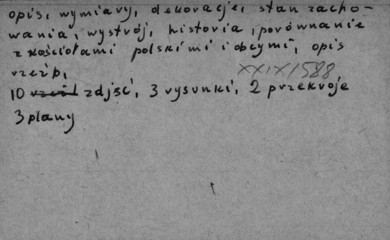 opis, wymiary, dekoracje, stan zacho-
wania, wystrój, historia, porównanie
z kościołami polskimi i obcymi, opis
rzeźb,
XXIX/1588
10 zdjęć, 3 rysunki, 2 przekroje
3 plany